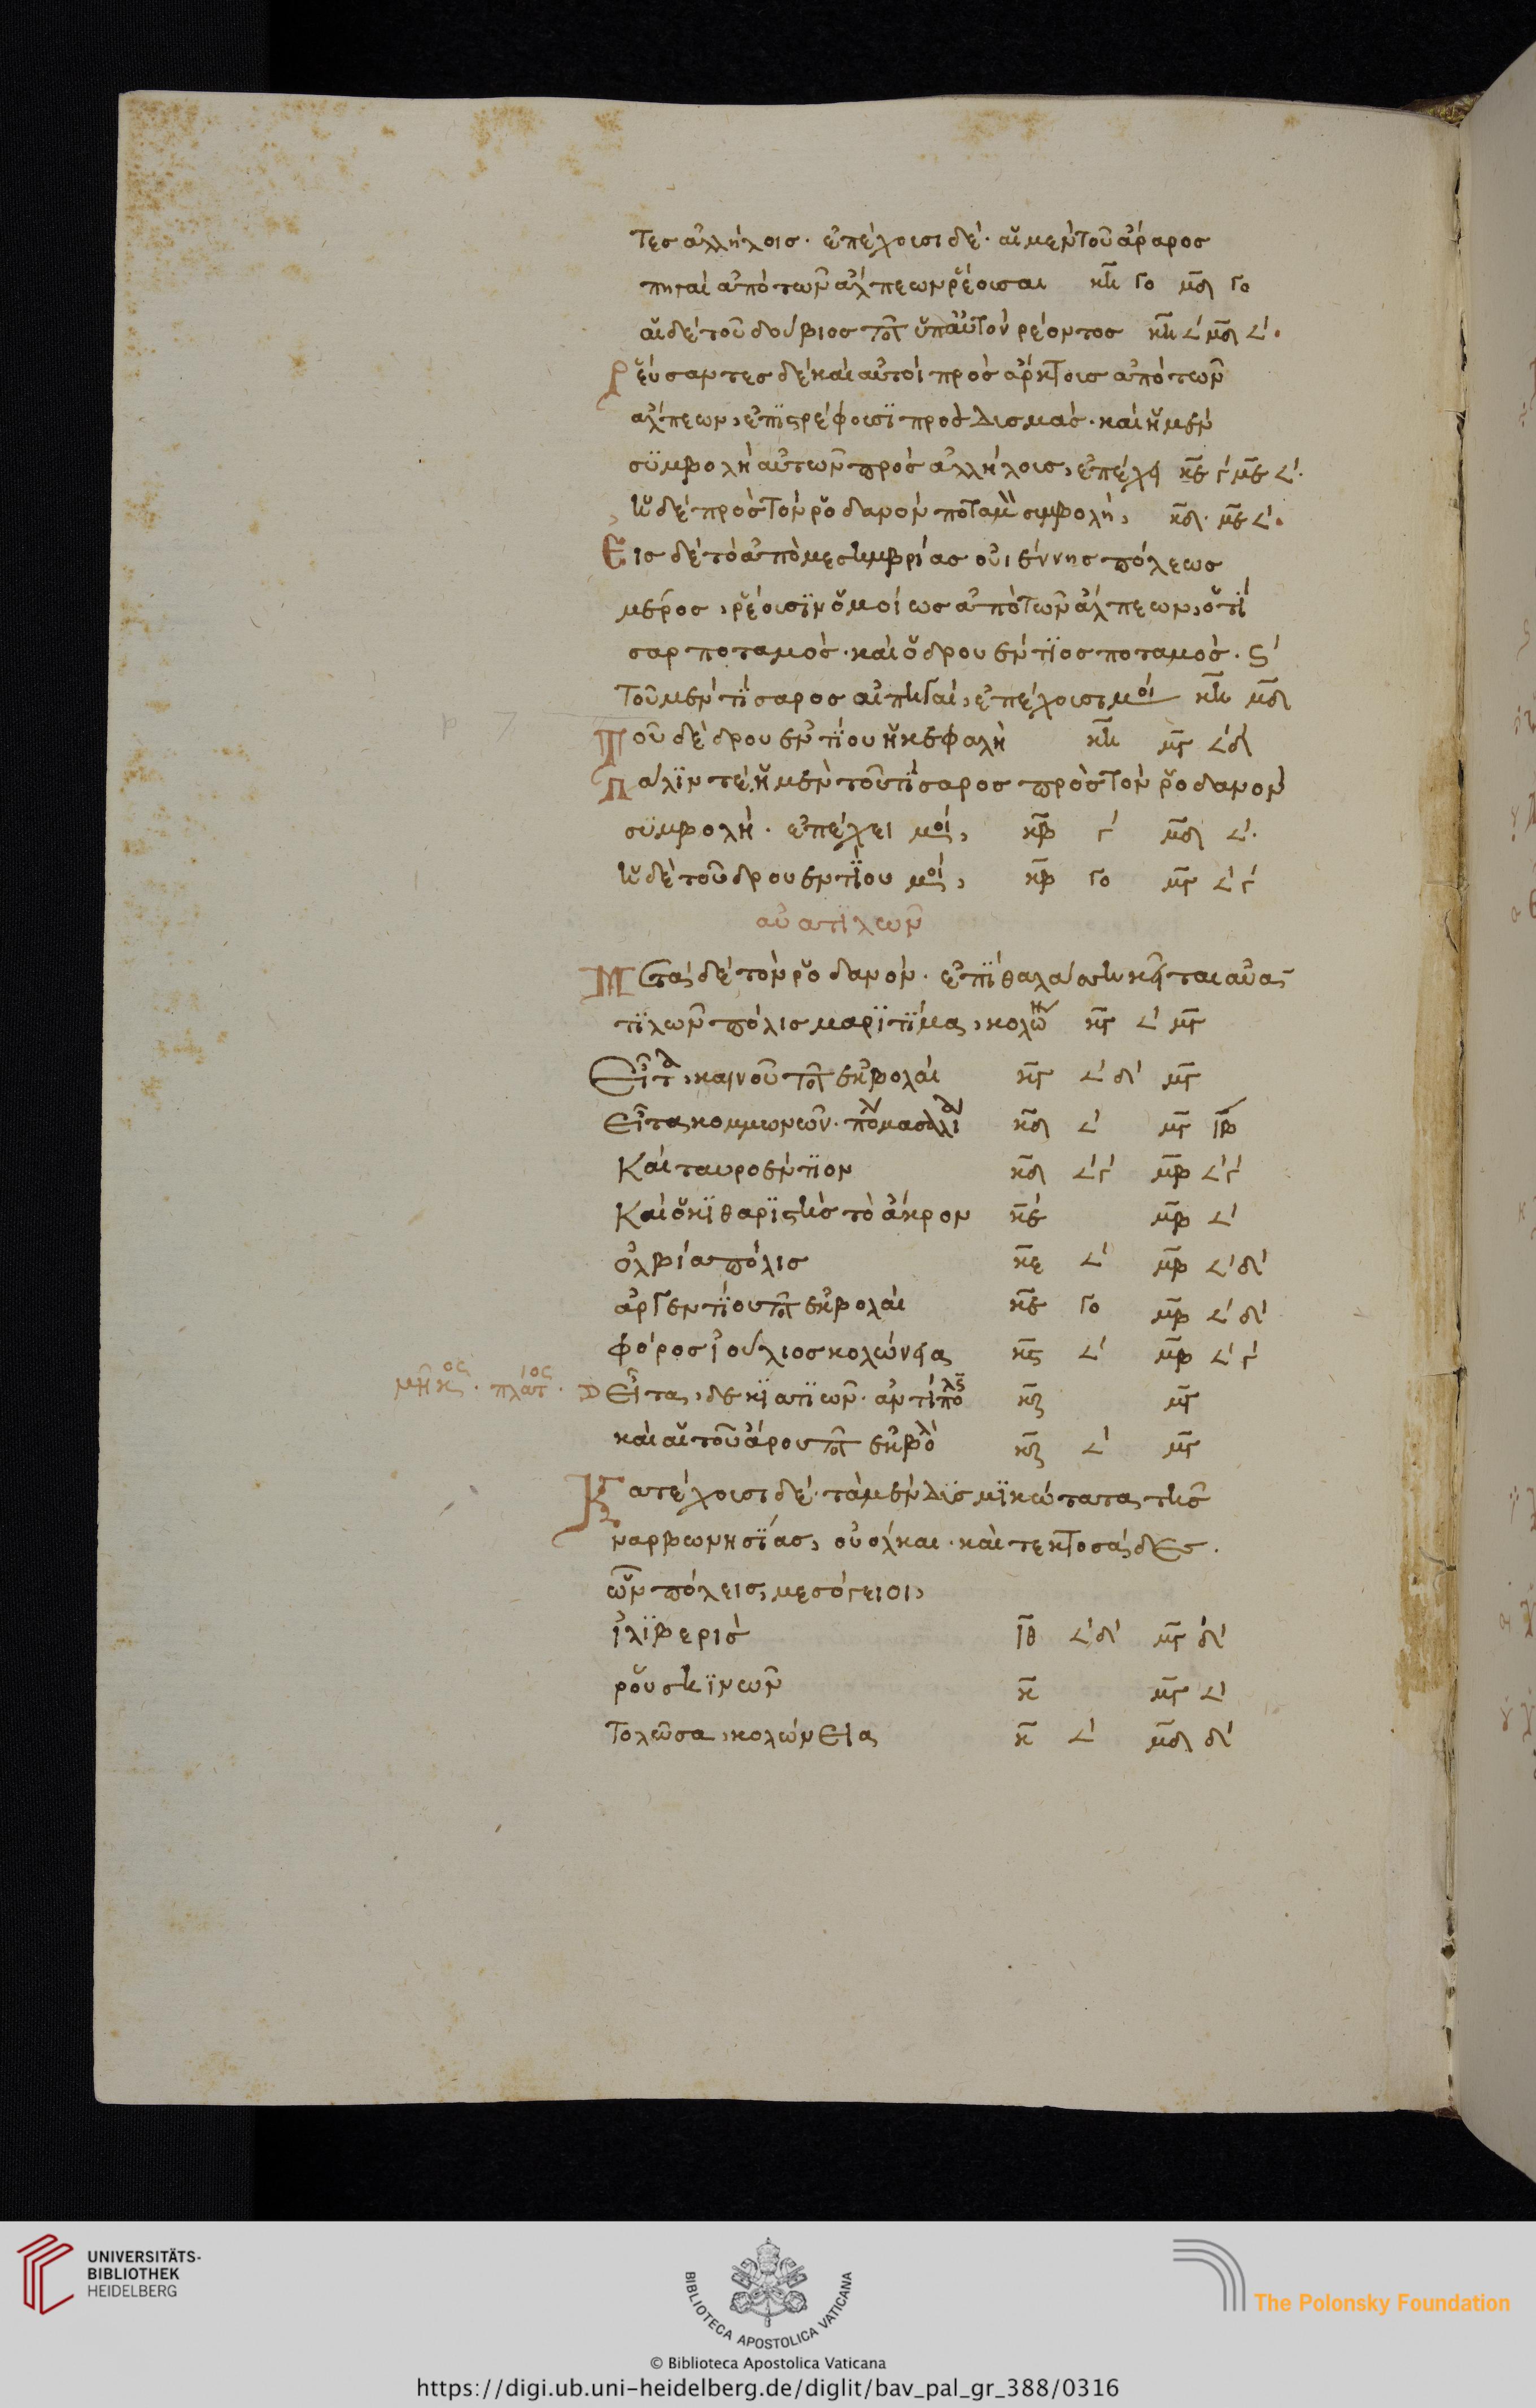 τες ἀλλήλοις· ἐπέχουσι δέ· αἱ μὲν τοῦ ἄραρος
πηγαὶ ἀπὸ τῶν ἄλπεων ῥέουσαι κη γο μδ γο
αἱ δὲ τοῦ δούβιος ποτ ὑπ αὐτὸν ρέοντος κη 𐅵 μδ 𐅵.
Ῥεύσαντες δὲ καὶ αὐτοὶ πρὸς ἄρκτους ἀπὸ τῶν
ἄλπεων, ἐπιστρέφουσι πρὸς δυσμάς· καὶ ἡ μὲν
συμβολὴ αὐτῶν πρὸς ἀλλήλους, ἐπέχει κε γ με 𐅵.
ἡ δὲ πρὸς τὸν ῥοδανὸν ποταμὸν συμβολή, κδ. με 𐅵.
Εἰς δὲ τὸ ἀπὸ μεσημβρίας οὐιέννης πόλεως
μέρος, ῥέουσιν ὁμοίως ἀπὸ τῶν ἄλπεων, ὅ τί
σαρ ποταμός· καὶ ὁ δρουέντιος ποταμός· ϛ
τοῦ μὲν τίσαρος αἱ πηγαί, ἐπέχουσι μοί κη μδ
Τοῦ δὲ δρουεντίου ἡ κεφαλὴ κη μγ 𐅵 δ
Πάλιν τέ, ἡ μὲν τοῦ τίσαρος πρὸς τὸν ῥοδανὸν
συμβολή· ἐπέχει μοί, κβ γ μδ 𐅵.
ἡ δὲ τοῦ δρουεντίου μοί, κβ γο μγ 𐅵 γ
αὐατιλῶν
Μετὰ δὲ τὸν ῥοδανόν· ἐπὶ θαλάσσῃ κεῖται αὐα
τιλῶν πόλις μαρίτιμα, κολων κγ 𐅵 μγ
Εἶτα, καινοῦ ποτ ἐκβολαὶ κγ 𐅵 δ μγ
Εἶτα κομμωνῶν· πο μασαλι κδ 𐅵 μγ ιβ
Καὶ ταυροέντιον κδ 𐅵 γ μβ 𐅵 γ
Καὶ ὁ κιθαριστὴς τὸ ἄκρον κε μβ 𐅵
ὀλβία πόλις κε 𐅵 μβ 𐅵 δ
ἀργεντίου ποτ ἐκβολαὶ κε γο μβ 𐅵 δ
φόρος ἰούλιος κολώνεια κϛ 𐅵 μβ 𐅵 γ
μῆκος· πλάτιος· Εἶτα, δεκιατιῶν· ἀντίπολς κζ μγ
καὶ αἱ τοῦ ἄρου ποτ ἐκβολ κζ 𐅵 μγ
Κατέχουσι δέ· τὰ μὲν δυσμικώτατα, τῆς
ναρβωνησίας, οὐόλκαι· καὶ τεκτοσάδες·
ὧν πόλεις, μεσόγειοι,
ἰλίβερις ιθ 𐅵 δ μγ δ
ῥουσκινῶν κ μγ 𐅵
τολῶσα, κολώνεια κ 𐅵 μδ δ
UNIVERSITÄTS-
BIBLIOTHEK
HEIDELBERG
BIBLIOTECA APOSTOLICA VATICANA
The Polonsky Foundation
© Biblioteca Apostolica Vaticana
https://digi.ub.uni-heidelberg.de/diglit/bav_pal_gr_388/0316